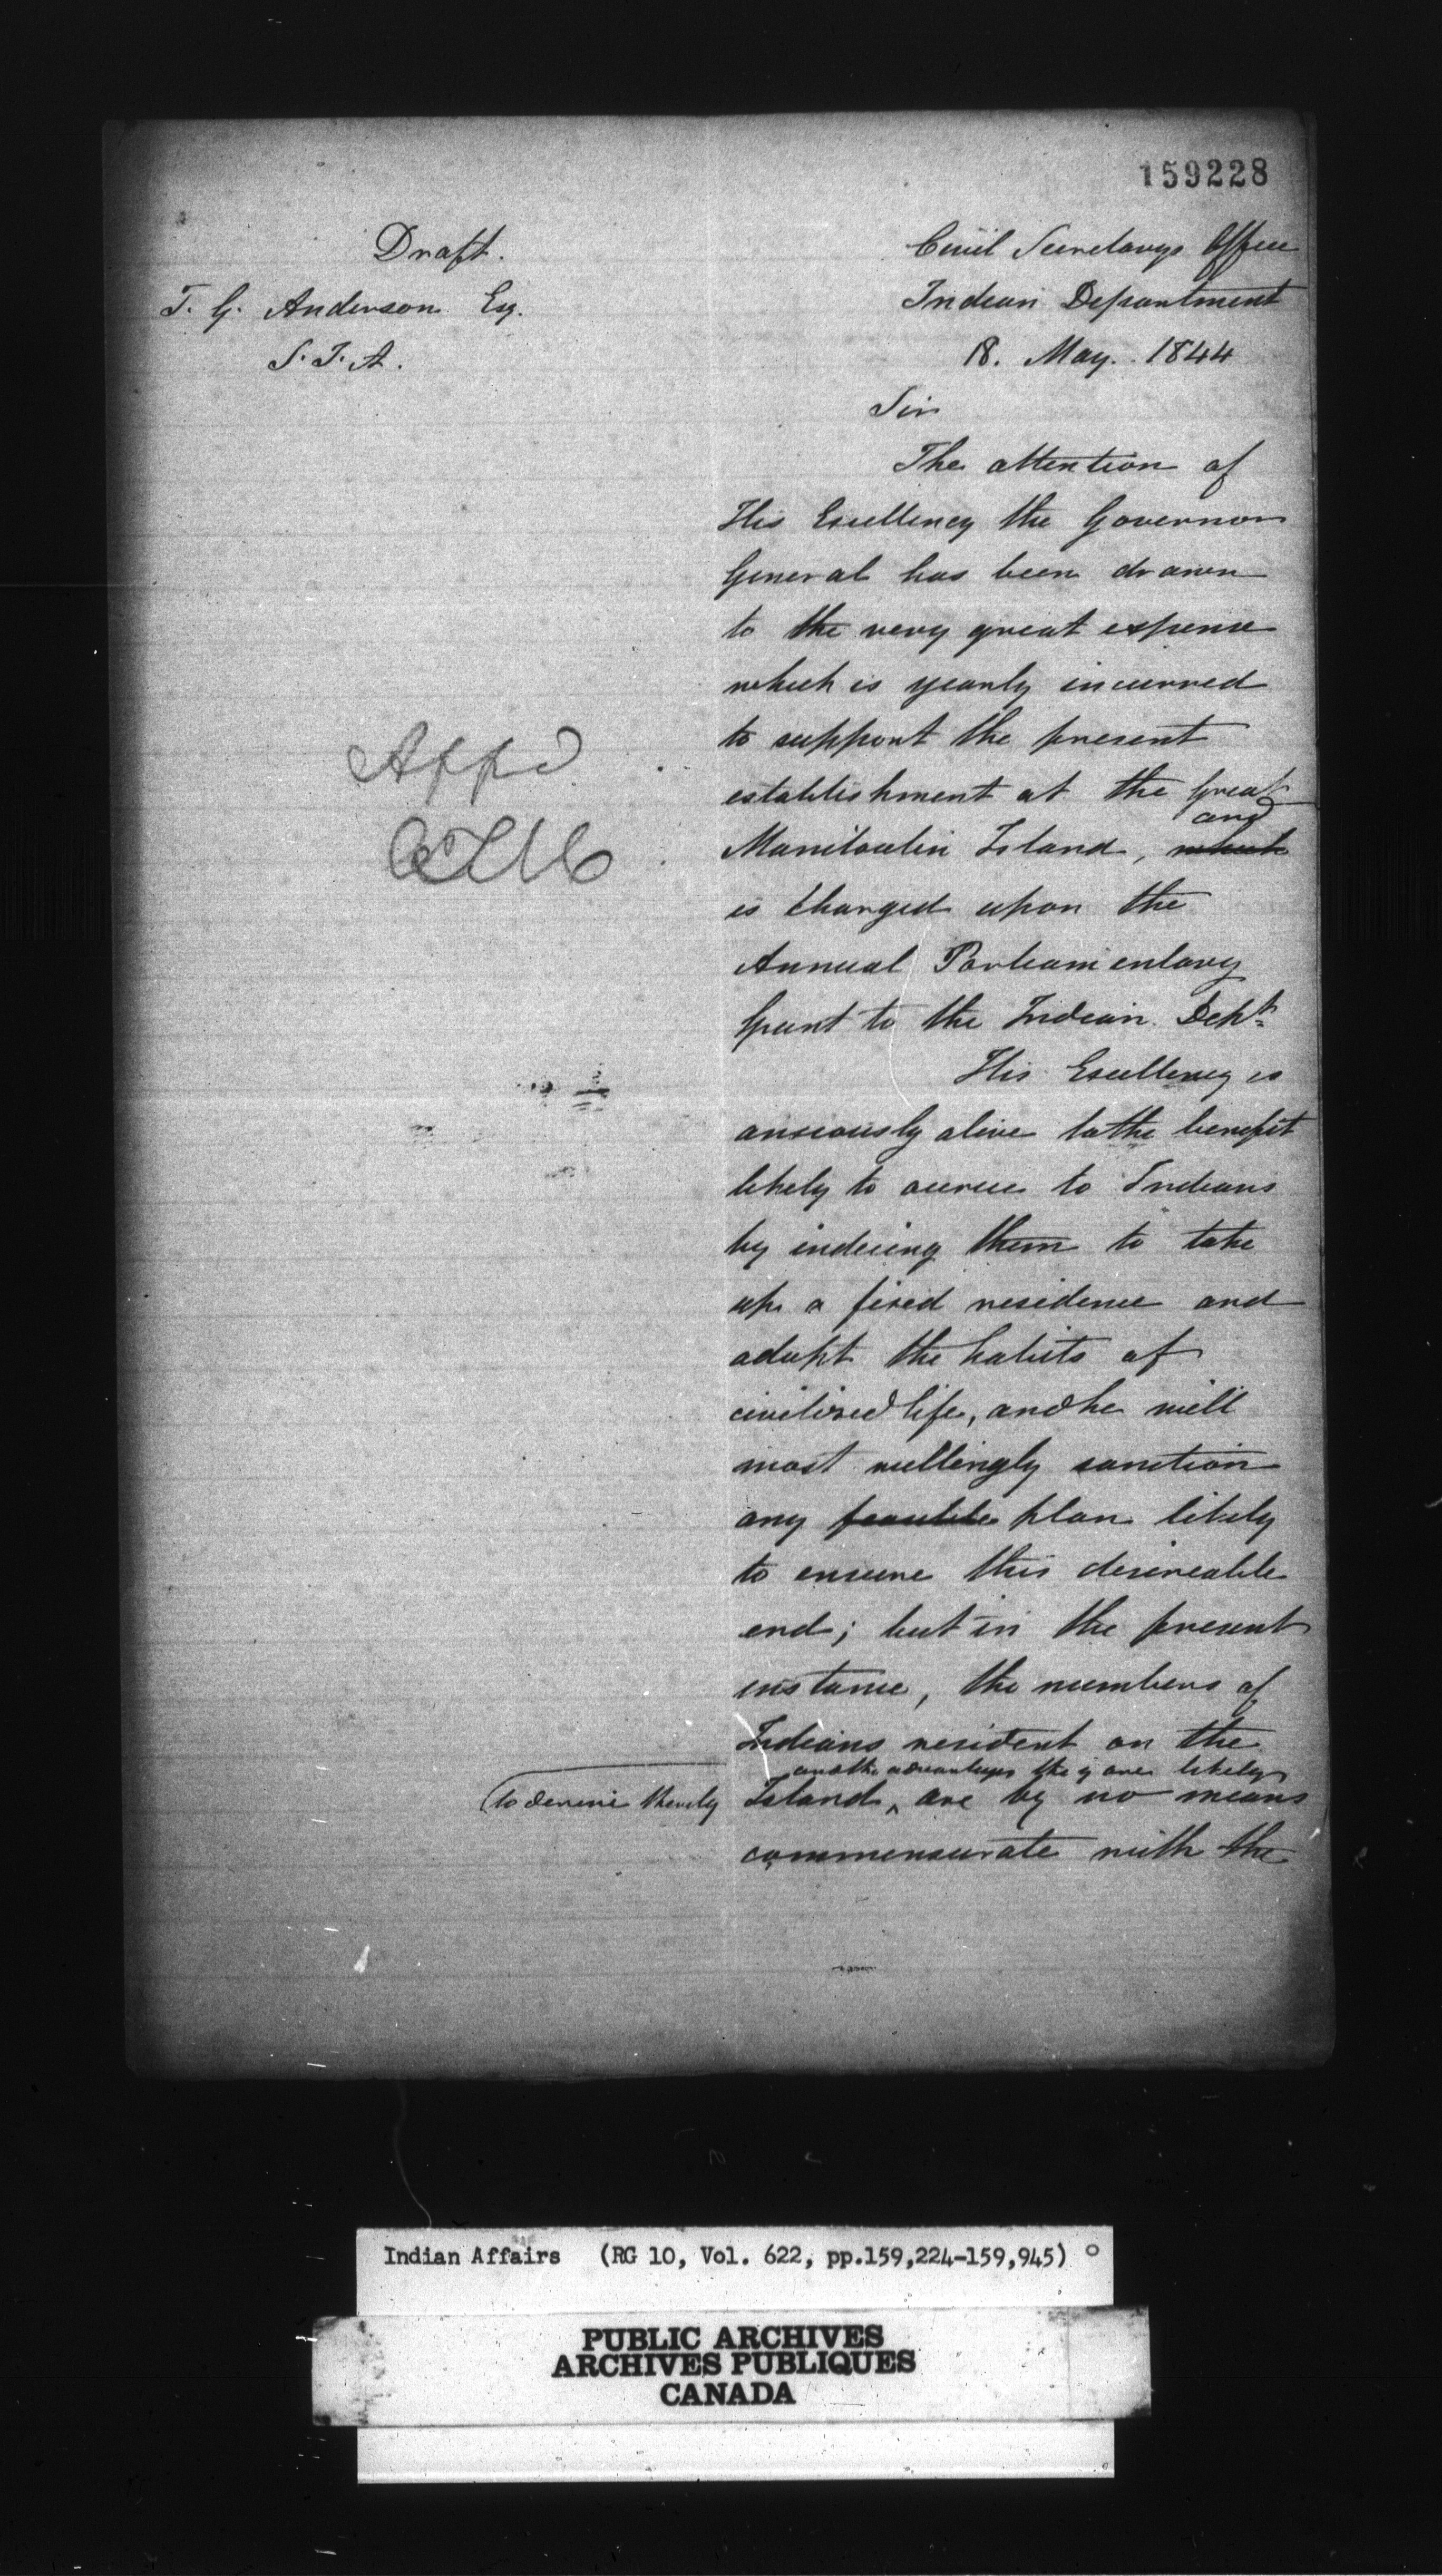 159228
Draft.
T. G. Anderson Esq.
S. I. A.
Civil Secretarys Office
Indian Department
18. May. 1844
Sir
The attention of
His Excellency the Governor
General has been drawn
to the very great expense
which is yearly incurred
to support the present
establishment at the Great
and
Manitoulin Island, which
is charged upon the
Annual Parliamentary
Grant to the Indian Dept.
Appd
His Excellency is
anxiously alive to the benefit
likely to accrue to Indians
by inducing them to take
up a fixed residence and
adopt the habits of
civilized life, and he will
most willingly sanction
any feasible plan likely
to ensure this desireable
end; but in the present
instance, the numbers of
Indians resident on the
and the advantages they are likely
(to derive thereby
Island ^ are by no means
commensurate with the
Indian Affairs (RG 10, Vol. 622, pp.159,224-159,945)
PUBLIC ARCHIVES
ARCHIVES PUBLIQUES
CANADA